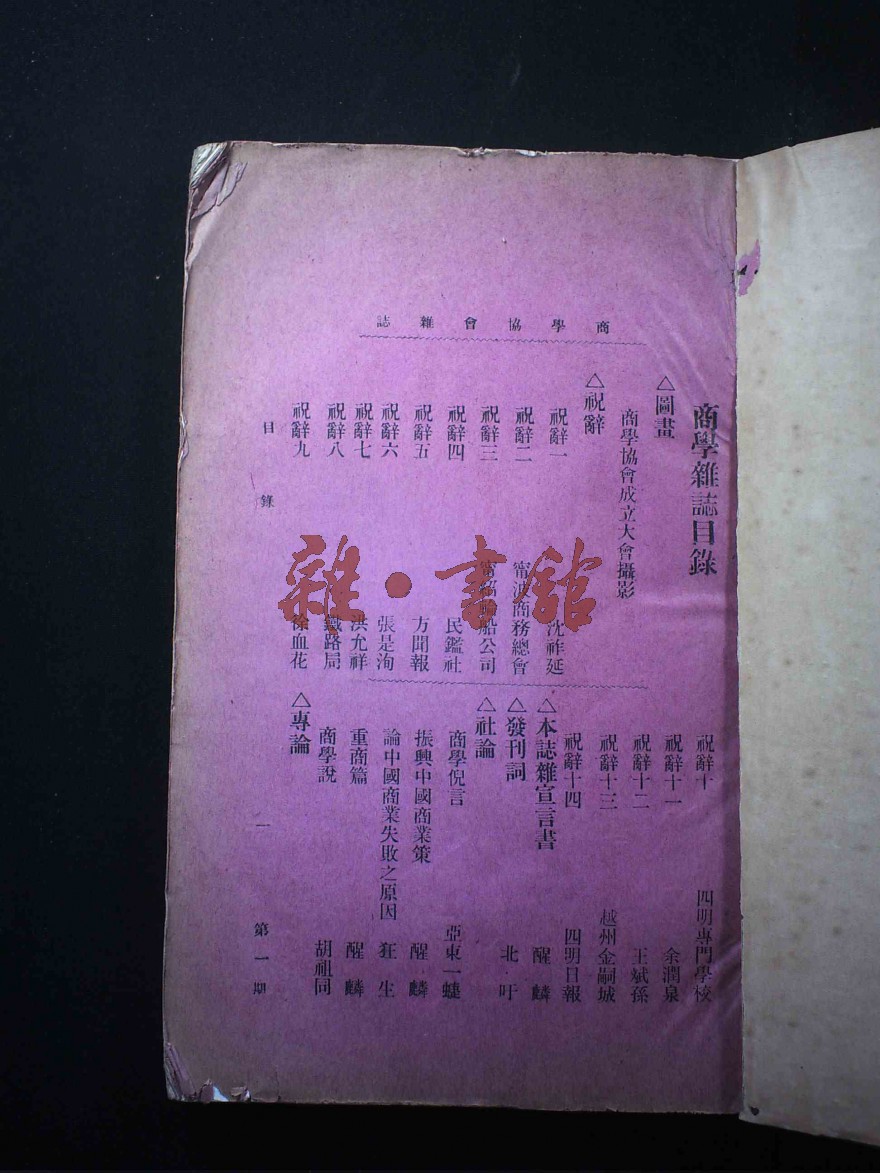 商學協會雜誌
商學雜誌目錄
△圖畫
商學協會成立大會攝影
△祝辭
祝辭一 沈祚延
祝辭二 甯波商務總會
祝辭三 甯紹輪船公司
祝辭四 民鑑社
祝辭五 方聞報
祝辭六 張是洵
祝辭七 洪允祥
祝辭八 鐵路局
祝辭九 徐血花
祝辭十 四明專門學校
祝辭十一 余潤泉
祝辭十二 王斌孫
祝辭十三 越州金嗣城
祝辭十四 四明日報
△本誌雜宣言書 醒麟
△發刊詞 北吁
△社論
商學倪言 亞東一蜨
振興中國商業策 醒麟
論中國商業失敗之原因 狂生
重商篇 醒麟
商學說 胡祖同
△專論
目錄 一 第一期
雜·書館